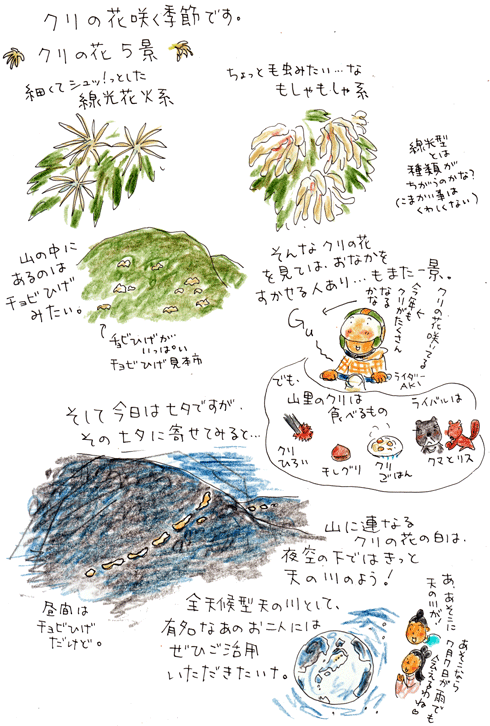 クリの花咲く季節です。
クリの花5景
細くてシュッ!っとした
線光花火系
ちょっと毛虫みたい…な
もしゃもしゃ系
線光型
とは
種類が
ちがうのかな?
(こまかい事は
くわしくない)
山の中に
あるのは
チョビひげ
みたい。
チョビひげが
いっぱい
チョビひげ見本市
そんなクリの花
を見ては、おなかを
すかせる人あり…もまた一景。
クリの花咲いてる
今年も
クリがたくさん
なる
かな
Gu
ライダー
AKI
でも、
山里のクリは
食べるもの
ライバルは
クリ
ひろい
ホシグリ
クリ
ごはん
クマとリス
そして今日は七夕ですが、
その七夕に寄せてみると…
山に連なる
クリの花の白は、
夜空の下ではきっと
天の川のよう!
昼間は
チョビひげ
だけど。
全天候型天の川として、
有名なあのお二人には
ぜひご活用
いただきたいナ。
あ、あそこに
天の川が!
あそこなら
7月7日が雨でも
会えるわね